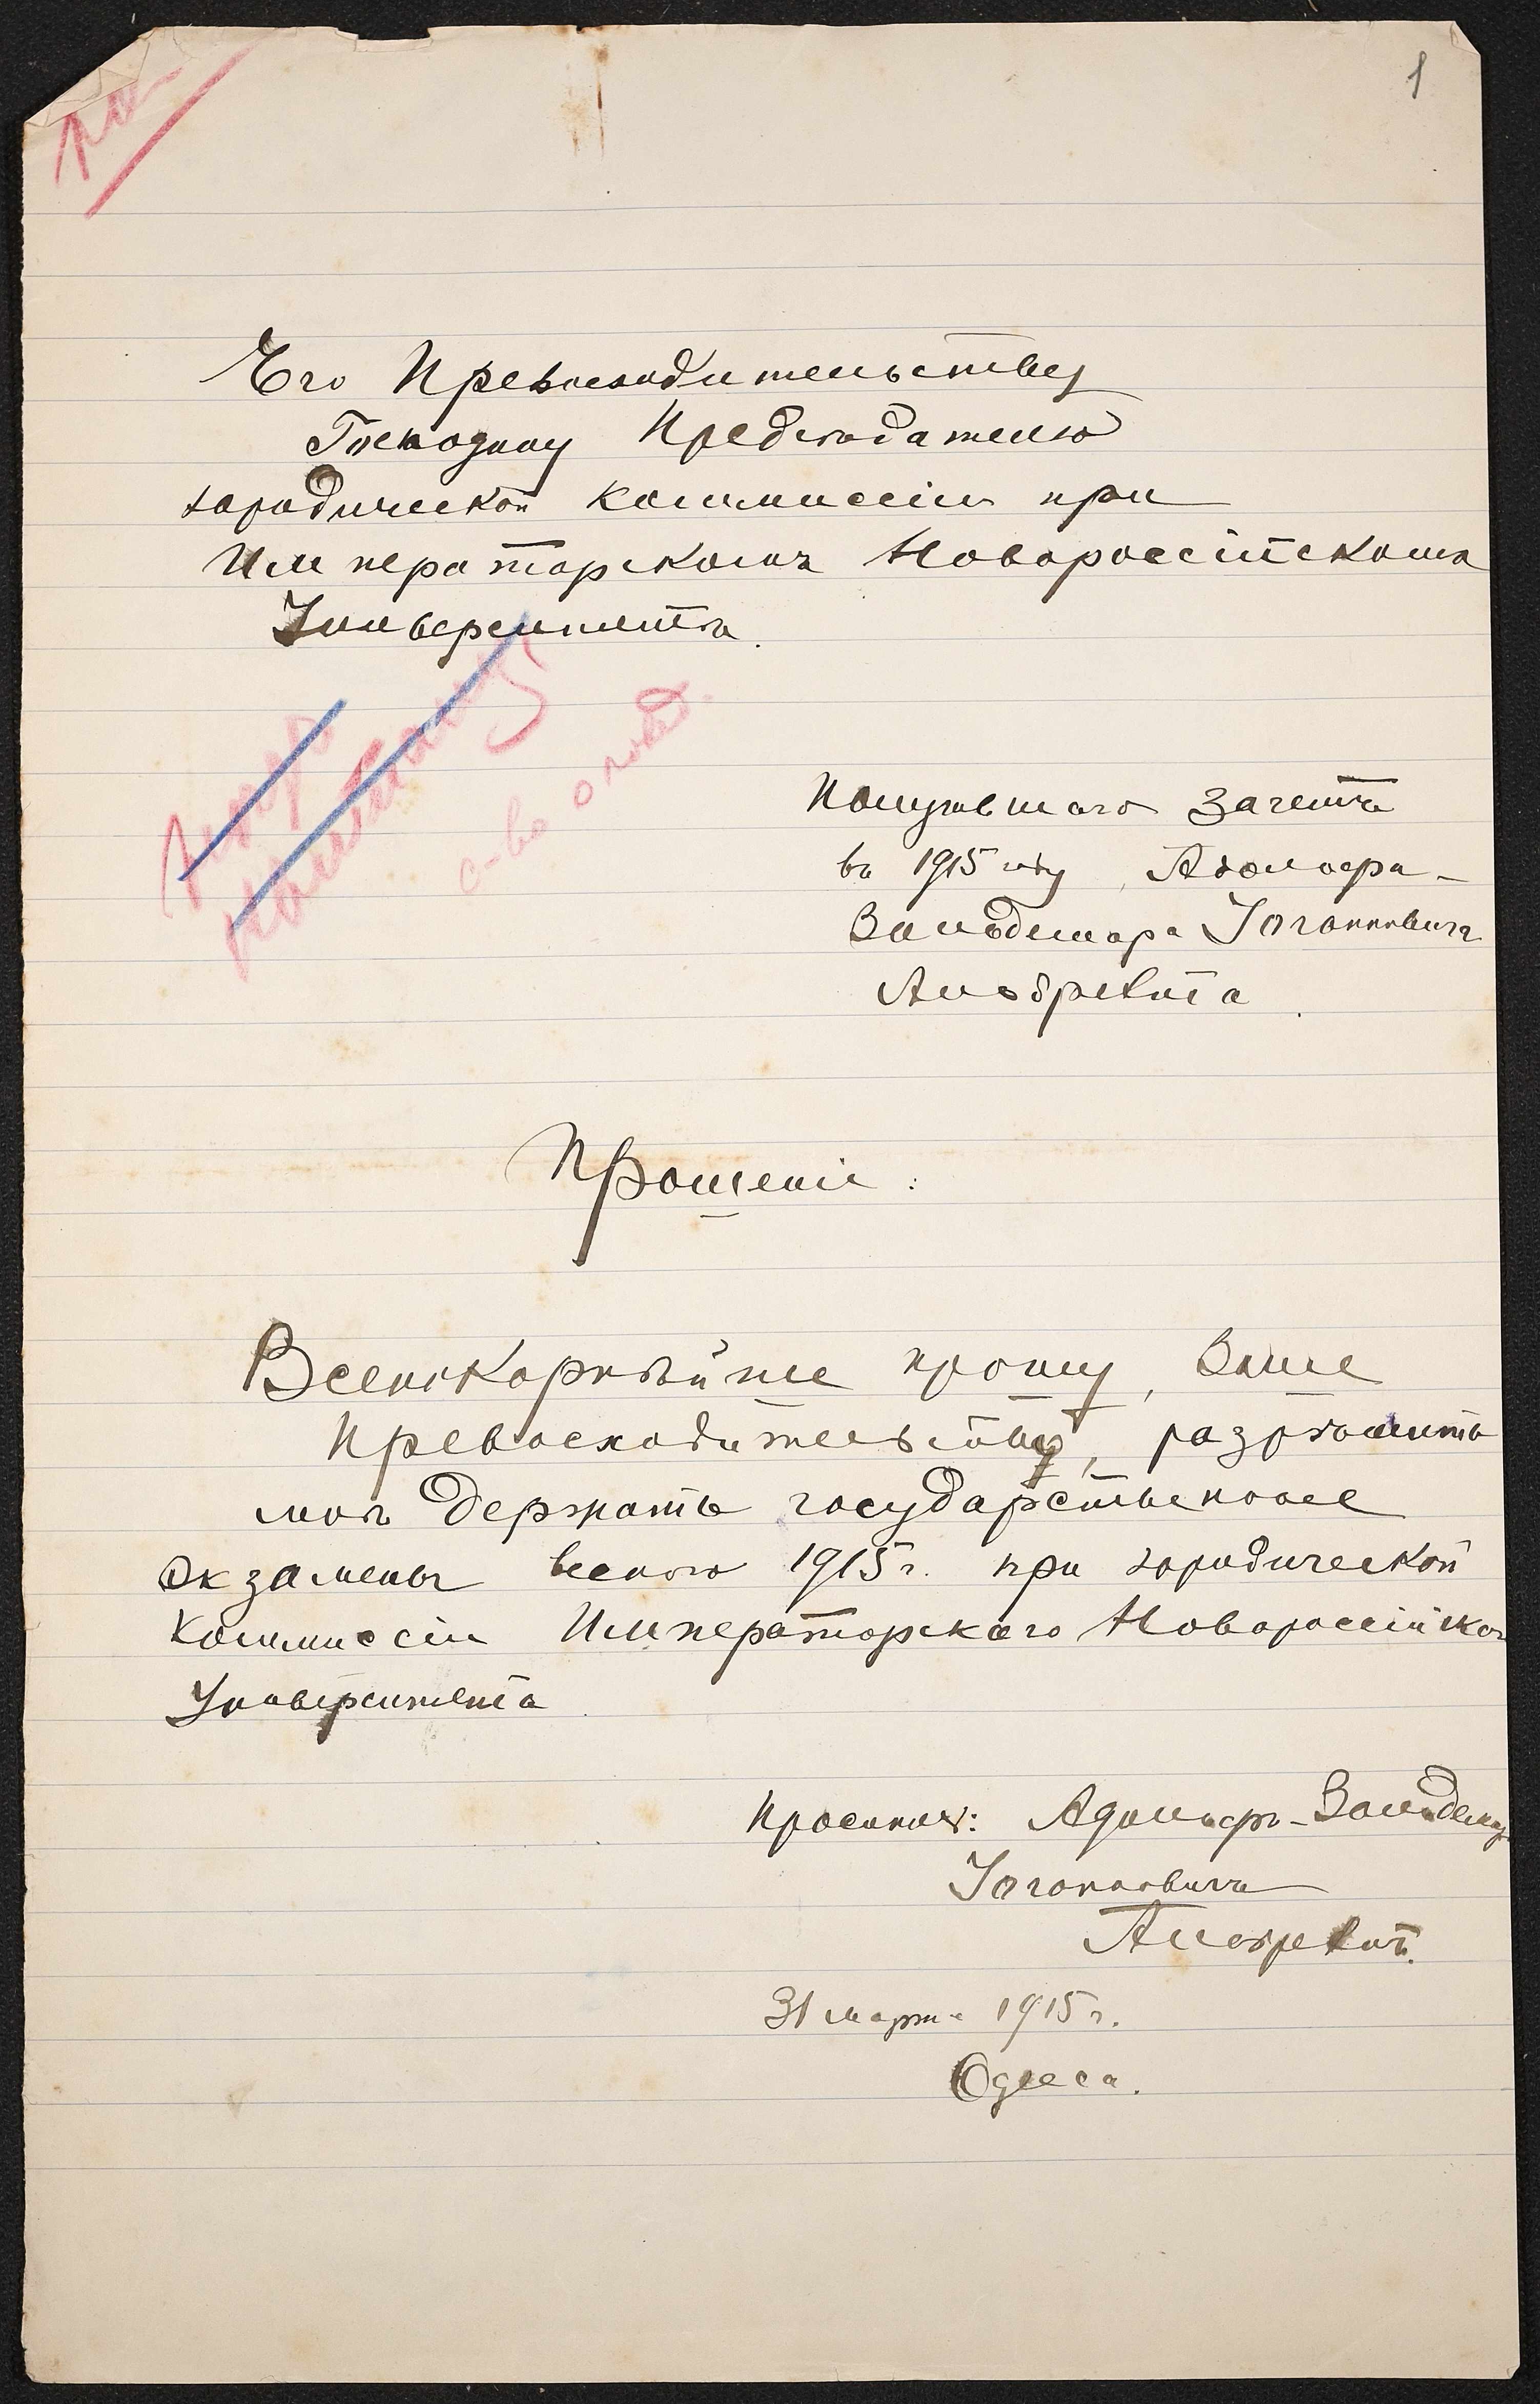 1
Его Превосходительству
Господину Предсѣдателю
юридической коммиссіи при
Императорскомъ Новороссійскомъ
Университетѣ.
с-во о повед.
Получившаго зачетъ
въ 1915 году, Адольфа-
Вальдемара Іоганновича
Альбрехта.
Прошеніе:
Всепокорнѣйше прошу, Ваше
Превосходительство, разрѣшить
мнѣ держать государственные
экзамены весною 1915 г. при юридической
коммиссіи Императорскаго Новороссійскаго
Университета.
Проситель: Адольфъ-Вальдемаръ
Іоганновичъ
Альбрехтъ.
31 марта 1915 г.
Одесса.